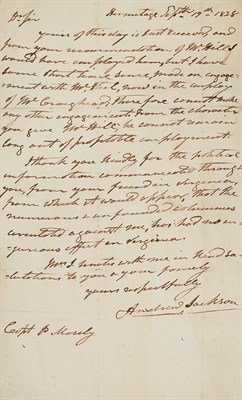 Hermitage Septbr 19th 1828
D Sir
yours of this day is just received and
from your recommendation of Mr Hill I
would have employed him, but I have
some short time since, made an engage-
ment with Mr Steel, now in the employ
of Mr Craighead, therefore cannot make
any other engagement. From the character
you give Mr Hill, he cannot want
long out of profitable employment.
I thank you kindly for the political
information communicated through
you, from your friend in Virginia
from which it would appear, that the
numerous & unfounded calumnies
circulated against me, has had no in-
jurious effect in Virginia.
Mrs J. unites with me in kind sa-
lutations to you & your family
yours respectfully
Andrew Jackson
Capt B Mosely